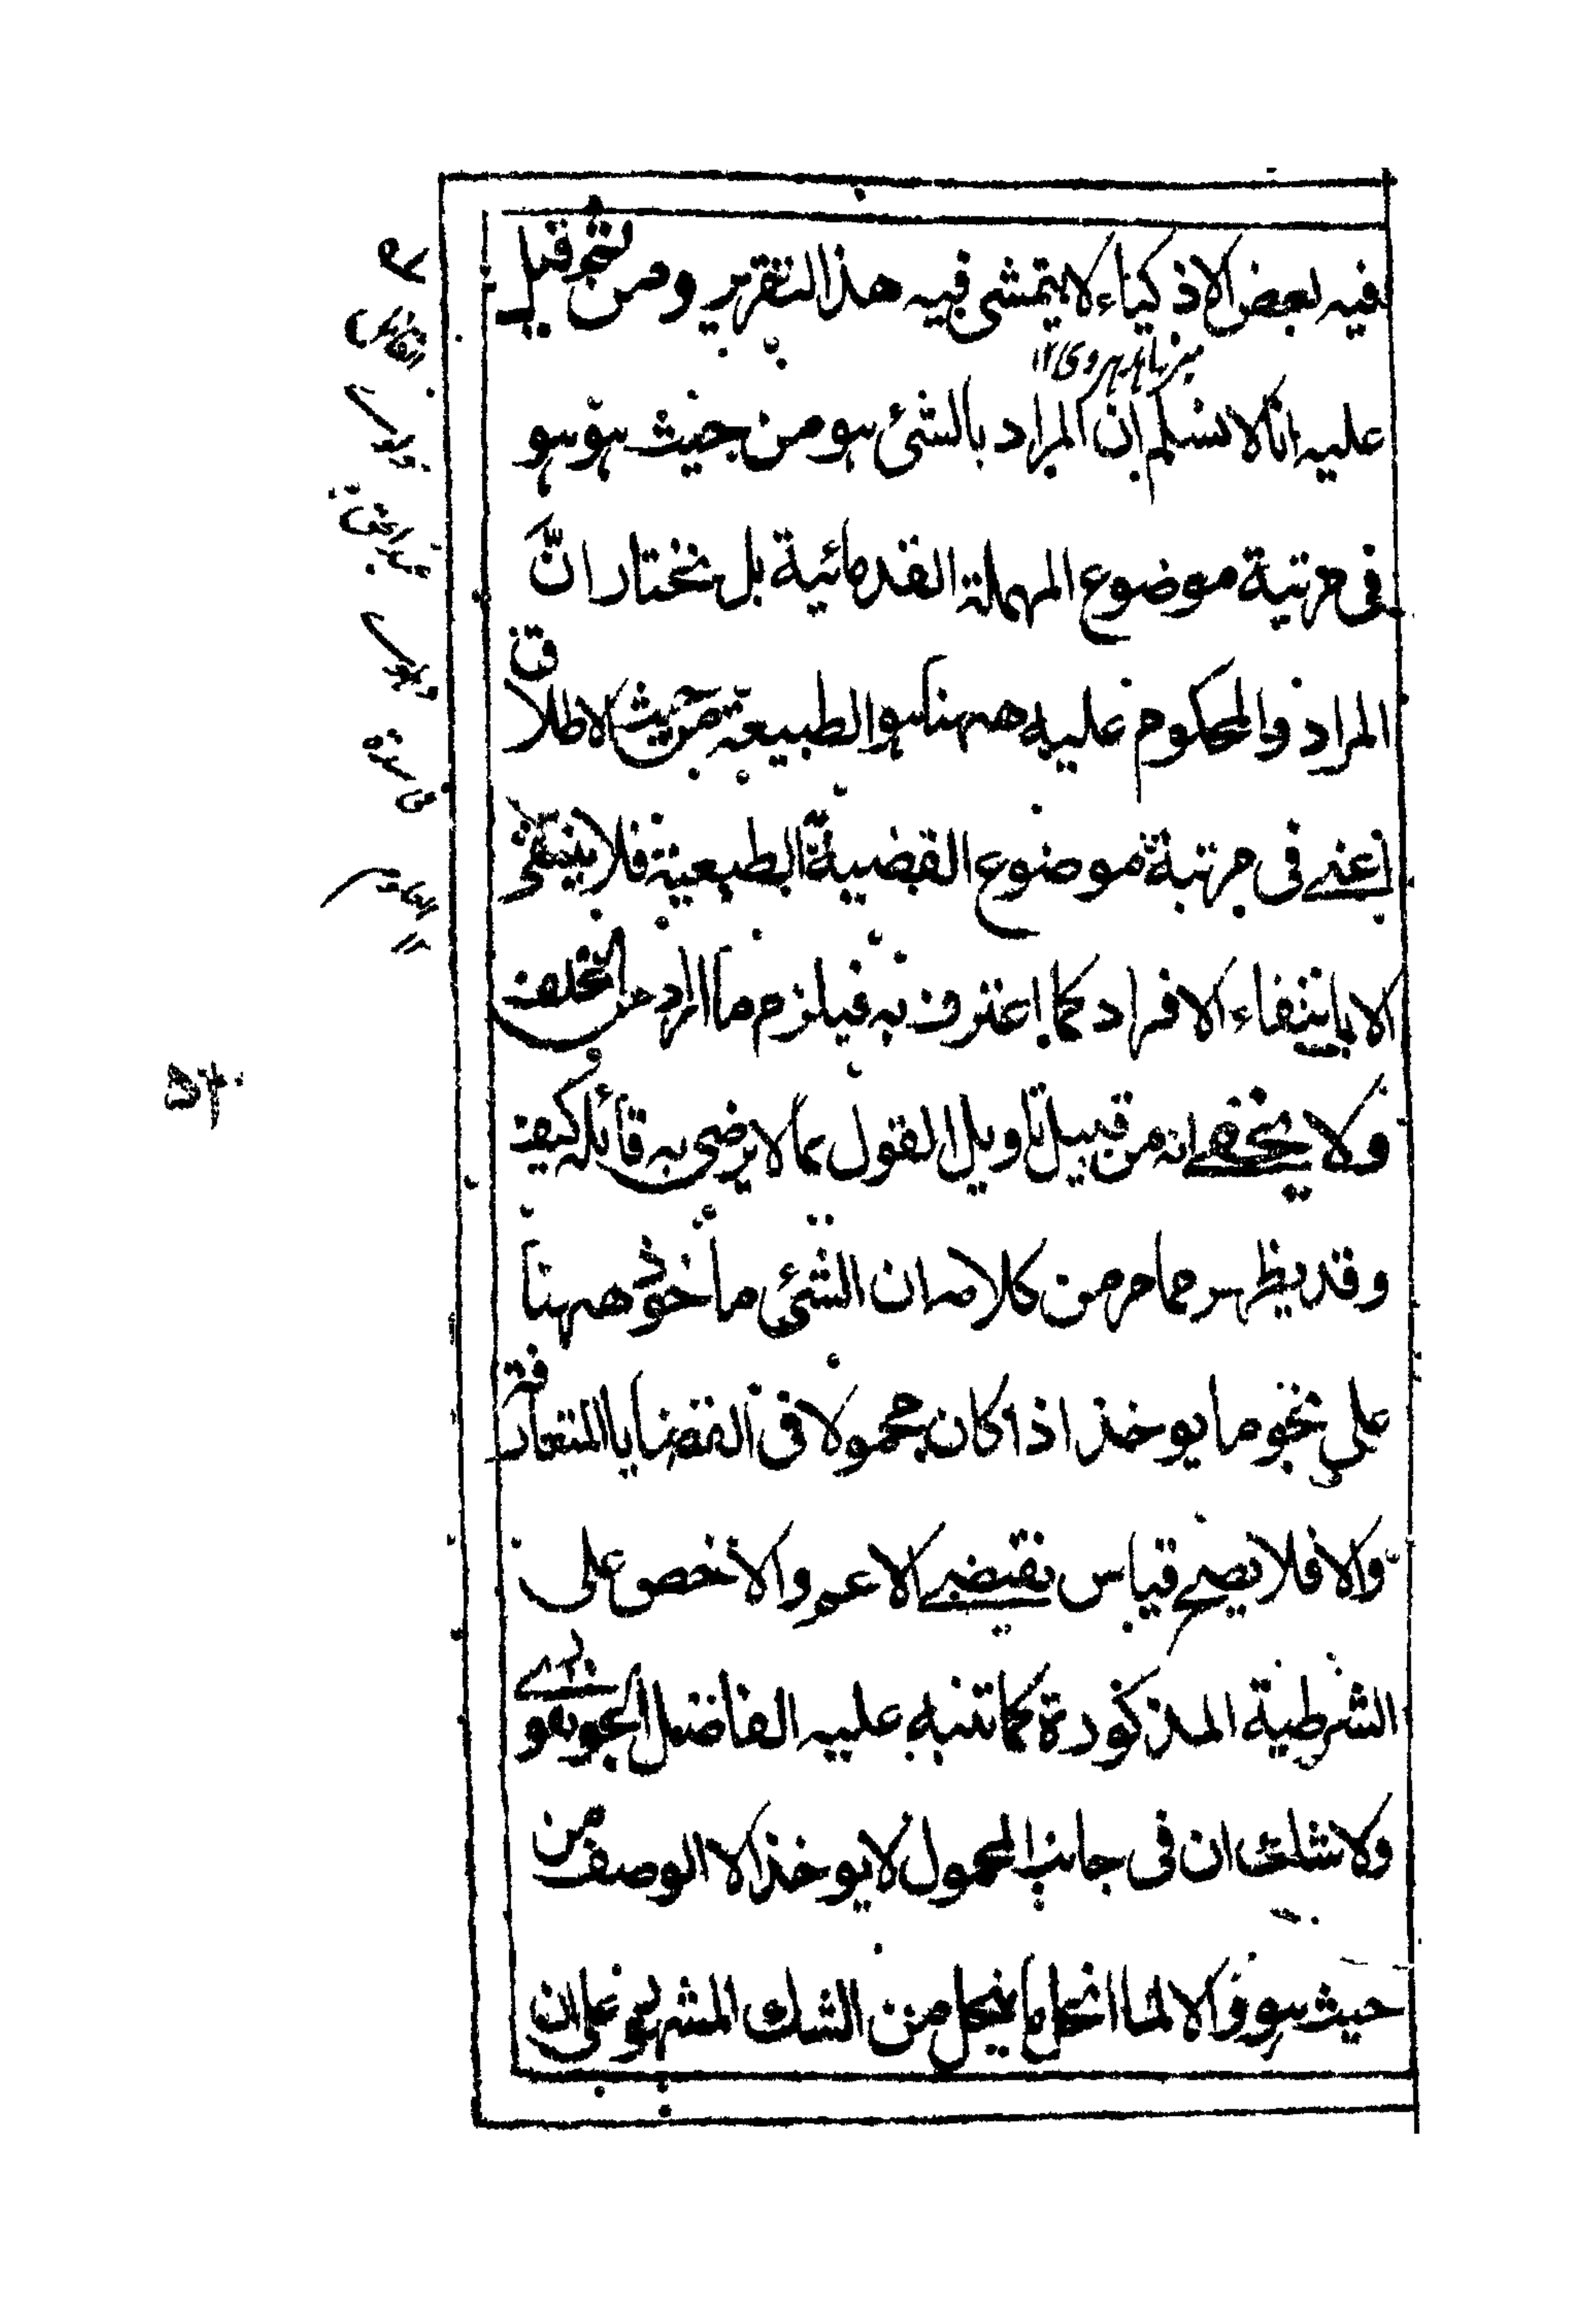 فيه بعض الاذكياء لا يتمشى فيه هذا التقرير ومن ثم قيل
ميرزاهد هروى ١٢
عليه انا لا نسلم ان المراد بالشئ هو من حيث هو هو
فى مرتبة موضوع المهملة القدمائية بل نختار انّ
المراد والمحكوم عليه ههنا هو الطبيعة من حيث الاطلاق
اعنى فى مرتبة موضوع القضية الطبعية فلا ينتفى
الا بانتفاء الافراد كما اعترف به فيلزم ما اراد من الخلف
ولا يخفى انه من قبيل تاويل القول بما لا يرضى به قائله كيف
وقد يظهر مما مر من كلامه ان الشئ ماخوذ ههنا
على نحو ما يوخذ اذا كان محمولا فى القضايا المتعارفة
والا فلا يصح قياس نقيضى الاعم والاخص على
الشرطية المذكورة كما تنبه عليه الفاضل الجونفورى
ولا شك ان فى جانب المحمول لا يوخذ الا الوصف من
حيث هو والا لما انحل ما ينحل من الشك المشهور على ان